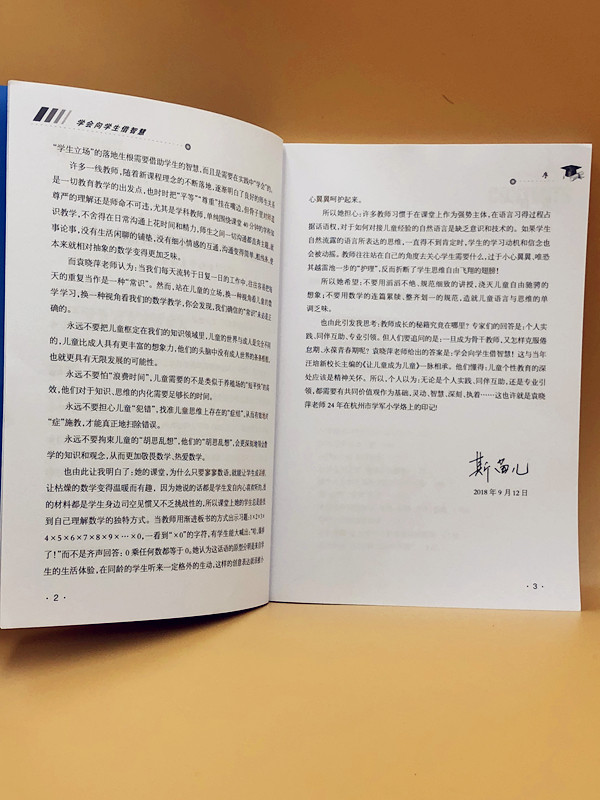 学会向学生借智慧
“学生立场”的落地生根需要借助学生的智慧,而且是需要在实践中“学会”的。
许多一线教师,随着新课程理念的不断落地,逐渐明白了良好的师生关系
是一切教育教学的出发点,也时时把“平等”“尊重”挂在嘴边,但骨子里对师道
尊严的理解还是师命不可违,尤其是学科教师,单纯围绕课堂40分钟的学科知
识教学,不舍得在日常沟通上花时间和精力,师生之间一切沟通都直奔主题、就
事论事,没有生活闲聊的铺垫,没有细小情感的互通,沟通变得简单、
本来就相对抽象的数学变得更加乏味。
而袁晓萍老师认为:当我们每天流转于日复一日的工作中,往往容易把每
天的重复当作是一种“常识”。然而,站在儿童的立场,换一种视角看儿童的数
学学习,换一种视角看我们的数学教学,你会发现,我们确信的“常识”未必是正
确的。
永远不要把儿童框定在我们的知识领域里,儿童的世界与成人是完全不同
的,儿童比成人具有更丰富的想象力,他们的头脑中没有成人世界的条条框框,
也就更具有无限发展的可能性。
永远不要怕“浪费时间”,儿童需要的不是类似于养殖场的“短平快”的高
效,他们对于知识、思维的内化需要足够长的时间。
永远不要担心儿童“犯错”,找准儿童思维上存在的“症结”,从而有效地对
“症”施教,才能真正地扫除错误。
永远不要拘束儿童的“胡思乱想”,他们的“胡思乱想”,会更深刻地领会数
学的知识和观念,从而更加敬畏数学、热爱数学。
也由此让我明白了:她的课堂,为什么只要寥寥数语,就能让学生成诗朗,
让枯燥的数学变得温暖而有趣。因为她说的话都是学生发自内心喜欢听的,选
的材料都是学生身边司空见惯又不乏挑战性的,所以课堂上她的学生总是能做
到自己理解数学的独特方式。当教师用渐进板书的方式出示习题:1×2×3×
4×5×6×7×8×9×…×0,一看到“×0”的字符,有学生能大喊出:“哈,爆掉
了!”而不是齐声回答:0乘任何数都等于0,她认为这话语的原型分明是来自学
生的生活体验,在同龄的学生听来一定格外的生动,这样的创意表达能被小
·2·
序
心翼翼呵护起来。
所以她担心:许多教师习惯于在课堂上作为强势主体,在语言习得过程占
据话语权,对于如何对接儿童经验的自然语言是缺乏意识和技术的。如果学生
自然流露的语言所表达的思维,一直得不到肯定时,学生的学习动机和信念也
会被动摇。教师往往站在自己的角度去关心学生需要什么,过于小心翼翼,唯恐
其越雷池一步的“护理”,反而折断了学生思维自由飞翔的翅膀!
所以她希望:不要用滔滔不绝、规范细致的讲授,浇灭儿童自由驰骋的
想象;不要用数学的连篇累牍、整齐划一的规范,造就儿童语言与思维的单
调乏味。
也由此引发我思考:教师成长的秘籍究竟在哪里?专家们的回答是:个人实
践、同伴互助、专业引领。但人们要追问的是:一旦成为骨干教师,又怎样克服倦
怠期、永葆青春期呢?袁晓萍老师给出的答案是:学会向学生借智慧!这与当年
汪培新校长主编的《让儿童成为儿童》一脉相承。他们懂得:儿童个性教育的深
处应该是精神关怀。所以,个人以为:无论是个人实践、同伴互助,还是专业引
领,都需要有共同价值观作为基础,灵动、智慧、深刻、执着……这也许就是袁晓
萍老师24年在杭州市学军小学烙上的印记!
斯苗儿
2018年9月12日
·3·